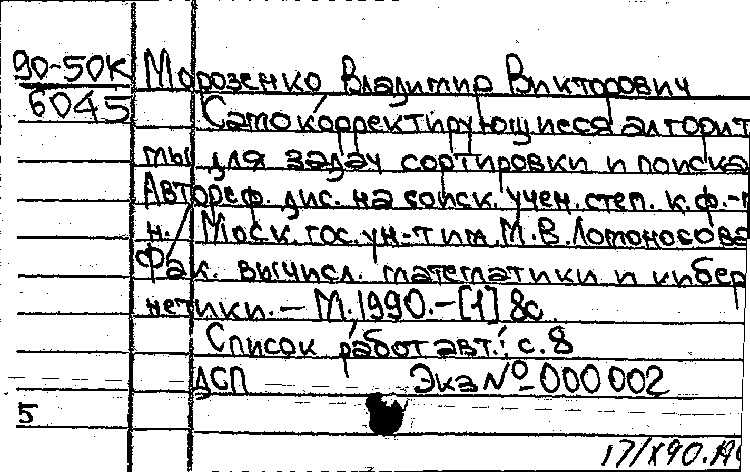 90-50К Морозенко Владимир Викторович
6045 Самокорректирующиеся алгорит
мы для задач сортировки и поиска
Автореф. дис. на соиск. учен. степ. к.ф.-м
н. Моск. гос. ун-т им. М.В.Ломоносова
Фак. вычисл. математики и кибер
нетики.— М.1990.—[1] 8с.
Список работ авт.: с.8
ДСП Экз №000002
5
17/X90.